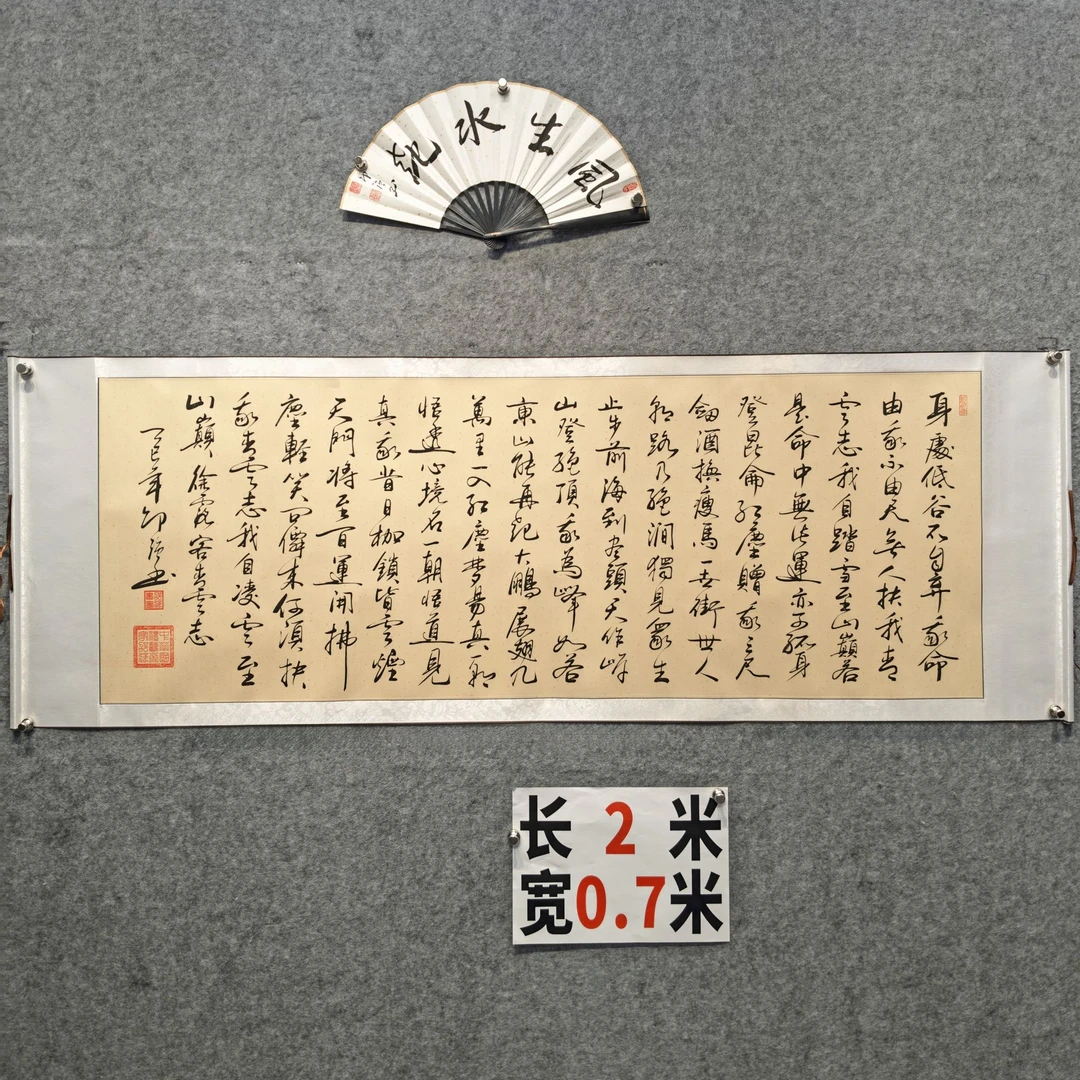 風生水起
身處低谷不自弃我命
由我不由天無人扶我青
雲志我自踏雪至山巔若
是命中無此運亦可孤身
登昆侖紅塵贈我三尺
劍酒換瘦馬一世街世人
路乃絕澗獨見眾生
止步前海到盡頭天作岸
山登絕頂我為峰如若
東山能再起大鵬展翅九
萬里一入紅塵夢易真
悟透心境名一朝悟道見
真我昔日枷鎖皆雲煙
天門將至百運開拂
塵輕笑問僊來何須扶
我青雲志我自凌雲至
山巔 徐霞客青雲志
乙巳年
长 2 米
宽0.7米